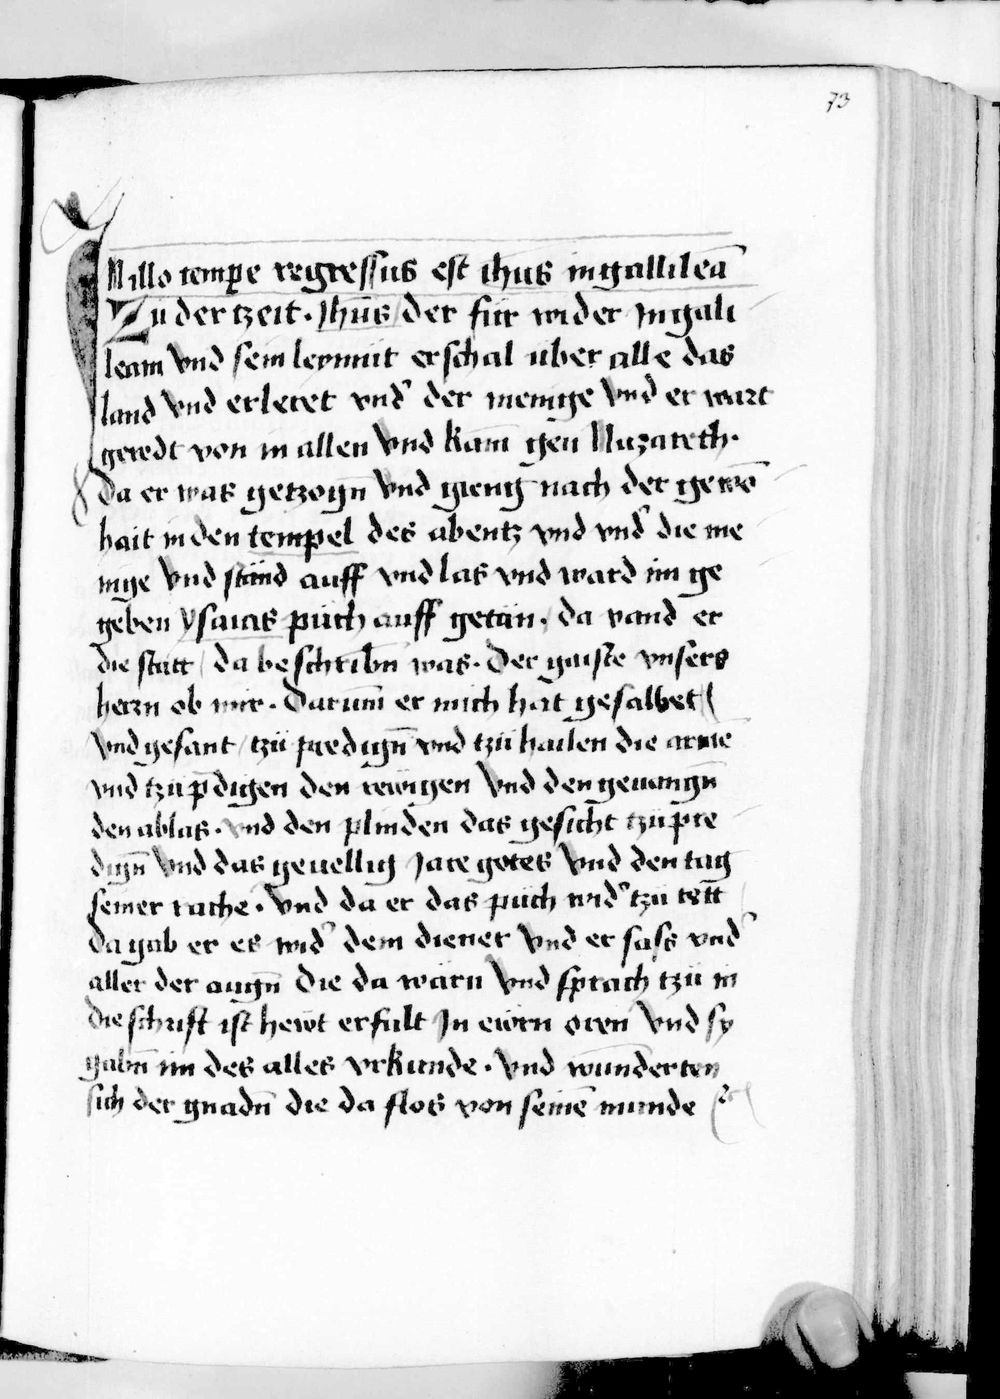 73
IN illo tempe regressus est ihus in gallileā
Zu der tzeit · Jhūs / der für wider Jn gali
leam Vnd sein leymüt erschal über alle das
land Vnd erleret vnd' der menige Vnd er wart
geredt von in allen Vnd kam gen Nazareth ·
da er was getzogn̄ Vnd gieng nach der gewō
hait in den tempel des abentz vnd vnd' die me
nige Vnd stünd auff vnd las vnd ward im ge
geben ysaias püch auff getän · / da vand er
die statt / da beschribn̄ was · Der gaiste vnsers
herrn ob mir · Darum̄ er mich hat gesalbet /
Vnd gesant / tzü predign̄ vnd tzü hailen die arme̅
vnd tzü p̄digen den rewigen Vnd den geuangn̄
den ablas · vnd den plinden das gesicht tzü pre
dign̄ Vnd das geuellig Jare gotes Vnd den tag
seiner rache · Vnd da er das püch wid' tzü tett
da gab er es wid' dem diener Vnd er sass vnd'
aller der augn̄ die da wärn Vnd sprach tzü in
die schrift ist hewt erfült Jn ewrn oren Vnd sy
gabn̄ im des alles vrkunde · Vnd wunderten
sich der gnadn̄ die da flos von seine̅ munde